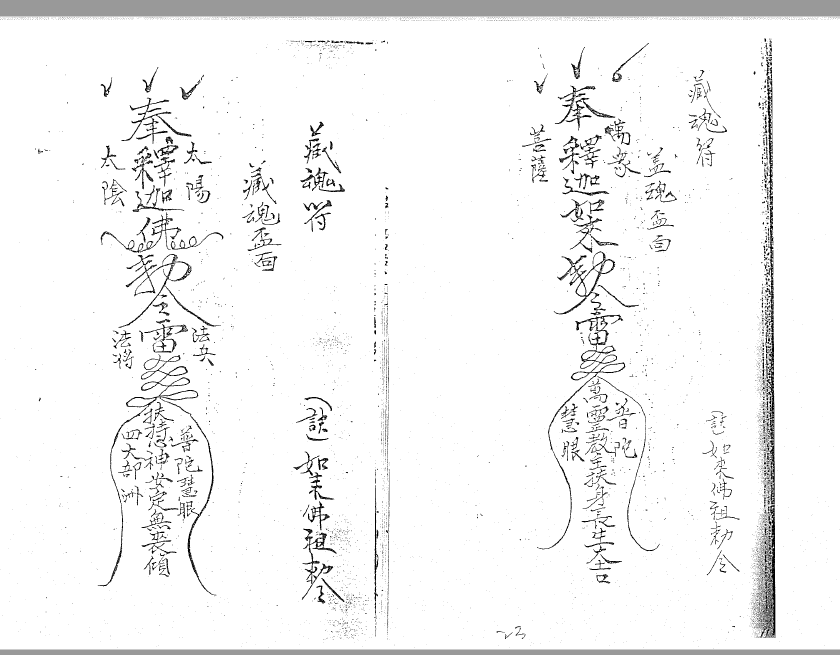 藏魂符
蓋魂盃面
奉
釋迦如來
勅令雷
萬象
菩薩
萬靈教主扶身長生大吉
普陀
慧眼
訣
如來佛祖勅令
藏魂符
藏魂盃面
奉
釋迦佛
勅令雷
太陽
太陰
法兵
法將
神安定無喪傾
普陀慧眼
四大部洲
(訣)
如來佛祖勅令
23